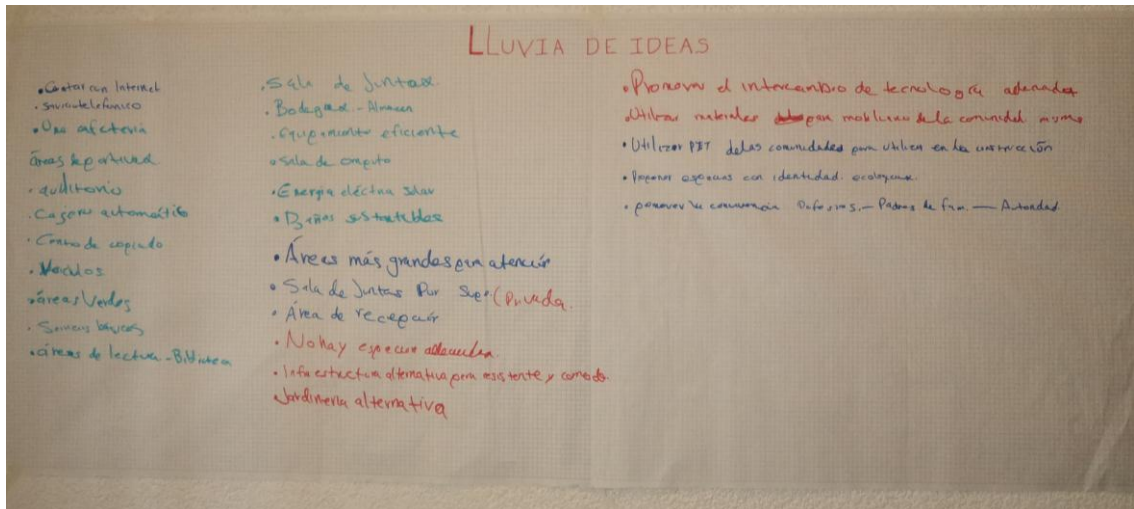 LLUVIA DE IDEAS
• Contar con Internet
• Servicio telefónico
• Una cafetería
áreas deportivas
• auditorio
• Cajero automático
• Centro de copiado
• Vehículos
• áreas Verdes
• Servicios básicos
• áreas de lectura - Biblioteca
• Sala de Juntas
• Bodegas - Almacen
• Equipamiento eficiente
• Sala de computo
• Energía eléctrica solar
• Baños sustentables
• Áreas más grandes para atención
• Sala de Juntas Por Super (Privada.
• Área de recepción
• No hay espacios adecuados
• Infraestructura alternativa pero resistente y comoda.
• Jardinería alternativa
• Promover el intercambio de tecnología adecuada
• Utilizar materiales para mobiliario de la comunidad misma
• Utilizar PET de las comunidades para utilizar en la construcción
• Proponer espacios con identidad ecologica.
• promover la convivencia - Padres de fam. — Autoridad.